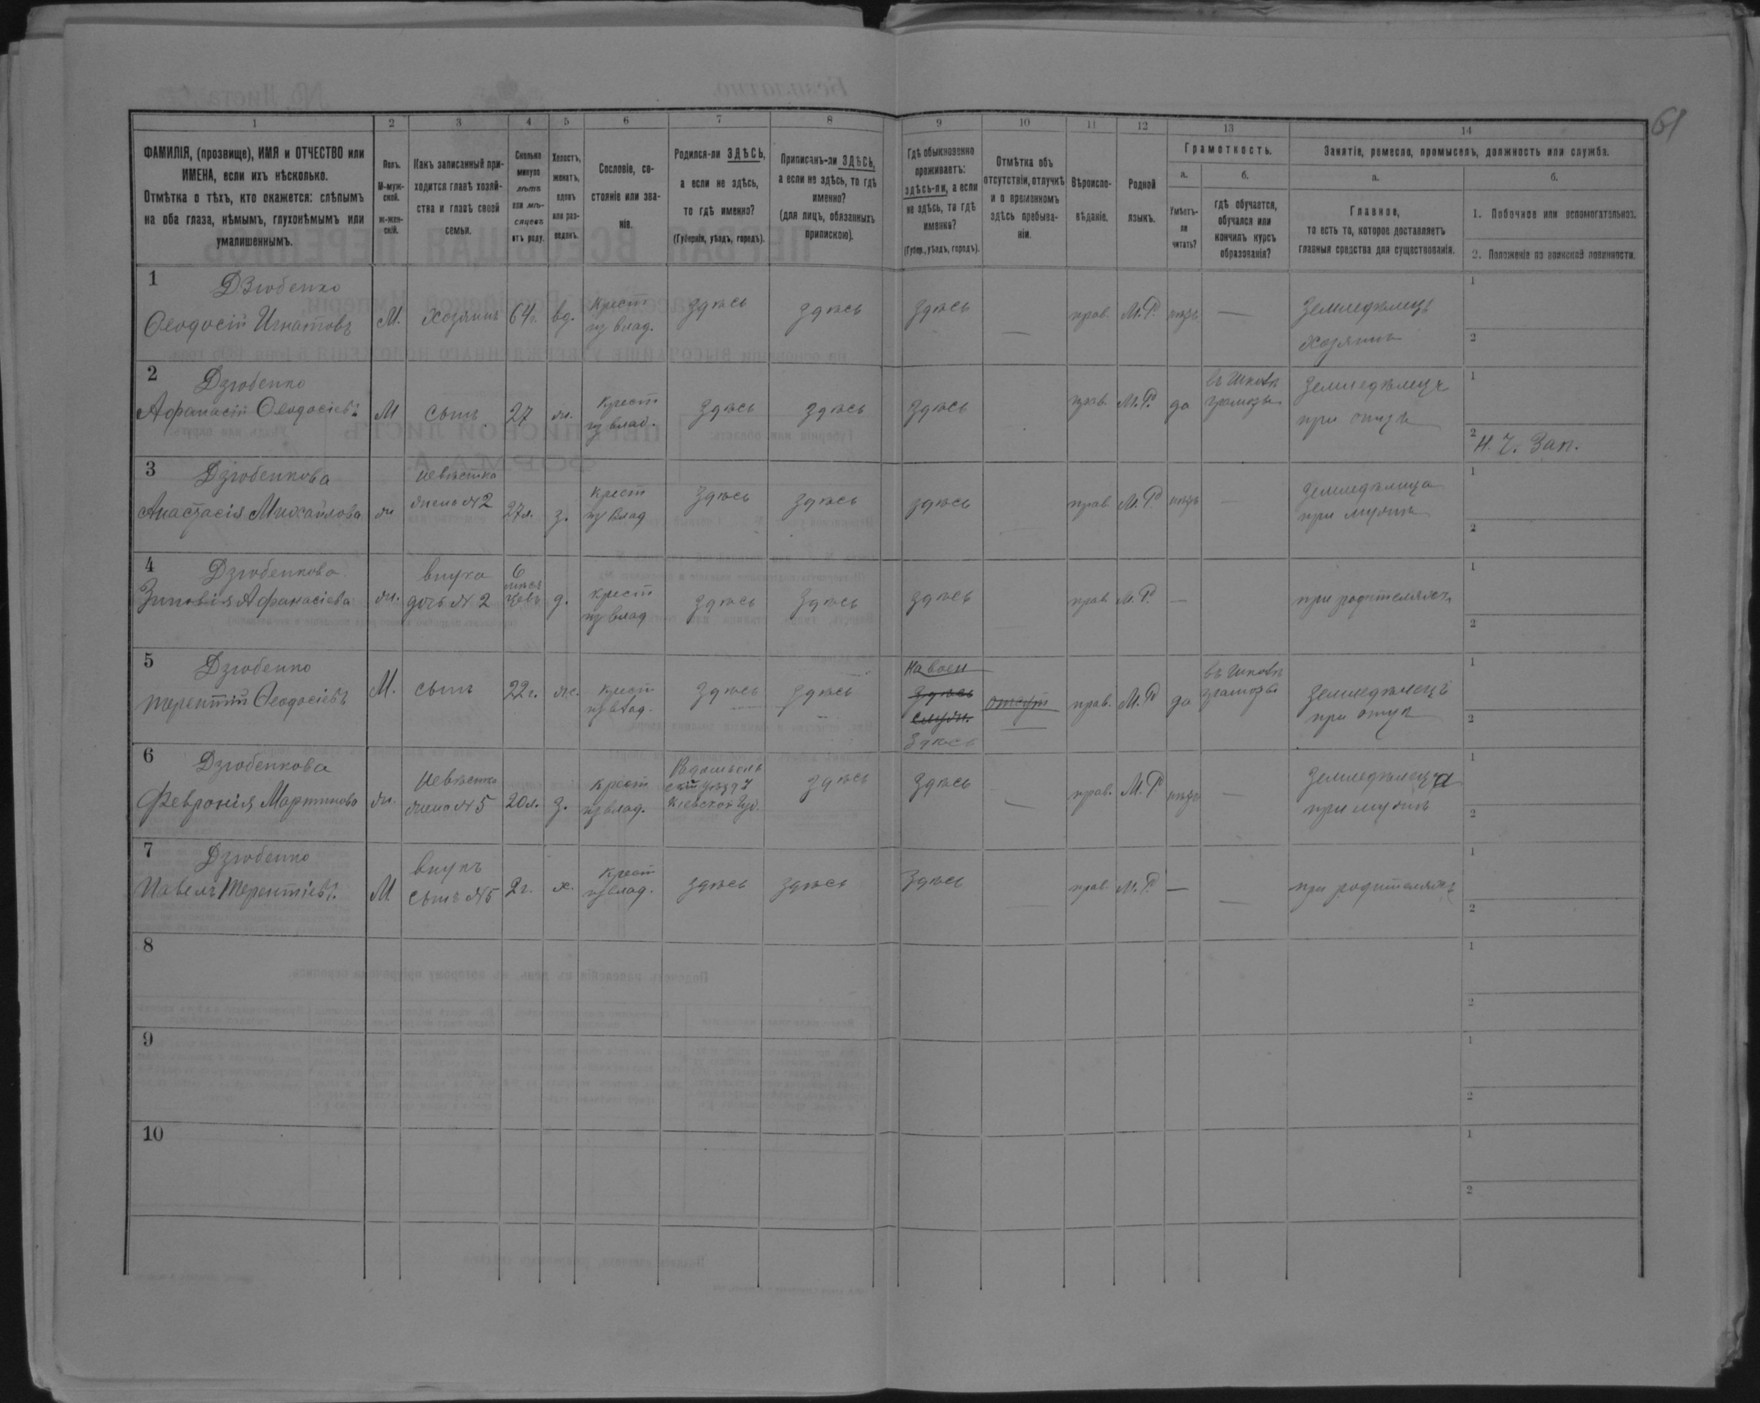 61
1 2 3 4 5 6 7 8 9 10 11 12 13 14
ФАМИЛІЯ, (прозвище), ИМЯ и ОТЧЕСТВО или ИМЕНА, если ихъ нѣсколько.
Отмѣтка о тѣхъ, кто окажется: слѣпымъ на оба глаза, нѣмымъ, глухонѣмымъ или умалишеннымъ.
Полъ.
М-мужской.
ж-женскій.
Какъ записанный приходится главѣ хозяйства и главѣ своей семьи.
Сколько минуло лѣтъ или мѣсяцевъ отъ роду.
Холостъ, женатъ, вдовъ или разведенъ.
Сословіе, состояніе или званіе.
Родился-ли ЗДѢСЬ, а если не здѣсь, то гдѣ именно?
(Губернія, уѣздъ, городъ).
Приписанъ-ли ЗДѢСЬ, а если не здѣсь, то гдѣ именно?
(для лицъ, обязанныхъ припискою).
Гдѣ обыкновенно проживаетъ: здѣсь-ли, а если не здѣсь, то гдѣ именно?
(Губер., уѣздъ, городъ).
Отмѣтка объ отсутствіи, отлучкѣ и о временномъ здѣсь пребываніи.
Вѣроисповѣданіе.
Родной языкъ.
Грамотность.
а.
Умѣетъ-ли читать?
б.
гдѣ обучается, обучался или кончилъ курсъ образованія?
Занятіе, ремесло, промыселъ, должность или служба.
а.
Главное,
то есть то, которое доставляетъ главныя средства для существованія.
б.
1. Побочное или вспомогательное.
2. Положеніе по воинской повинности.
1 Дзюбенко
Ѳеодосій Игнатовъ М. хозяинъ 64г. вд. крест из влад. здѣсь здѣсь здѣсь — прав. М.Р. нѣтъ — Земледѣлецъ хозяинъ
1
2
2 Дзюбенко
Афанасій Ѳеодосіевъ М сынъ 27 ж. крест из влад. здѣсь здѣсь здѣсь прав М.Р. да въ школѣ грамоты Земледѣлецъ при отцѣ
1
2 Н. Ч. Зап.
3 Дзюбенкова
Анастасія Михайлова ж невѣстка жена №2 27л. з. крест из влад здѣсь здѣсь здѣсь прав М.Р. нѣтъ — Земледѣлица при мужѣ
1
2
4 Дзюбенкова
Зиновія Афанасіева ж. внука дочь № 2 6 мѣсяцевъ д. крест из влад здѣсь здѣсь здѣсь прав М.Р. — при родителяхъ
1
2
5 Дзюбенко
Терентій Ѳеодосіевъ М. сынъ 22г. ж. крест из влад. здѣсь здѣсь на воен здѣсь служ. Здѣсь отсут прав. М.Р да въ школѣ грамоты Земледѣлецъ при отцѣ
1
2
6 Дзюбенкова
Февронія Мартинова ж. Невѣстка жена №5 20л. з. крест из влад. Кіевской Губ. здѣсь здѣсь — прав. М.Р нѣтъ — Земледѣлица при мужѣ
1
2
7 Дзюбенко
Павелъ Терентіевъ М внукъ сынъ №5 2г. х. крест из влад. здѣсь здѣсь Здѣсь — прав М.Р. — — при родителяхъ
1
2
8
1
2
9
1
2
10
1
2